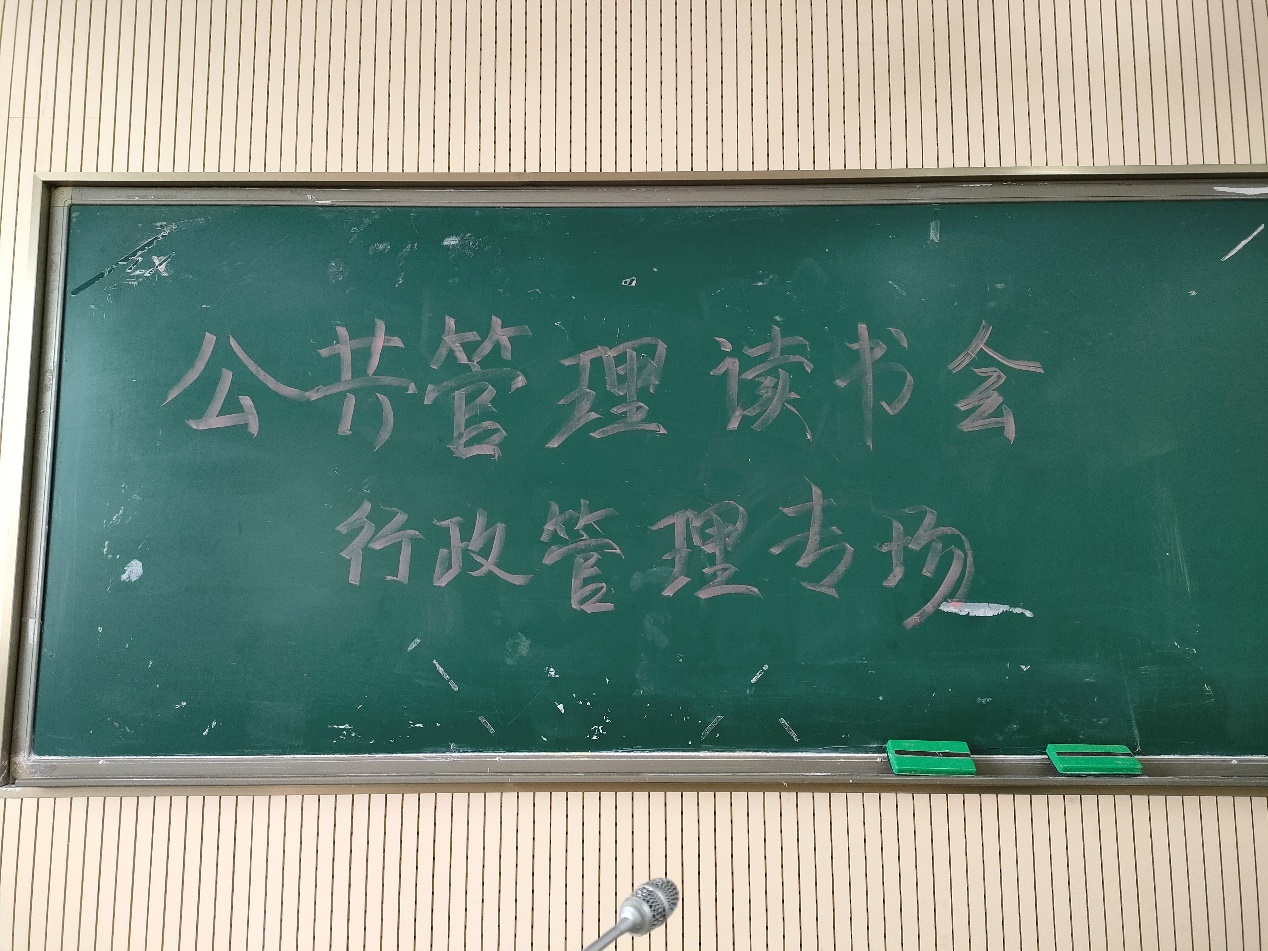 公共管理读书会
行政管理专场